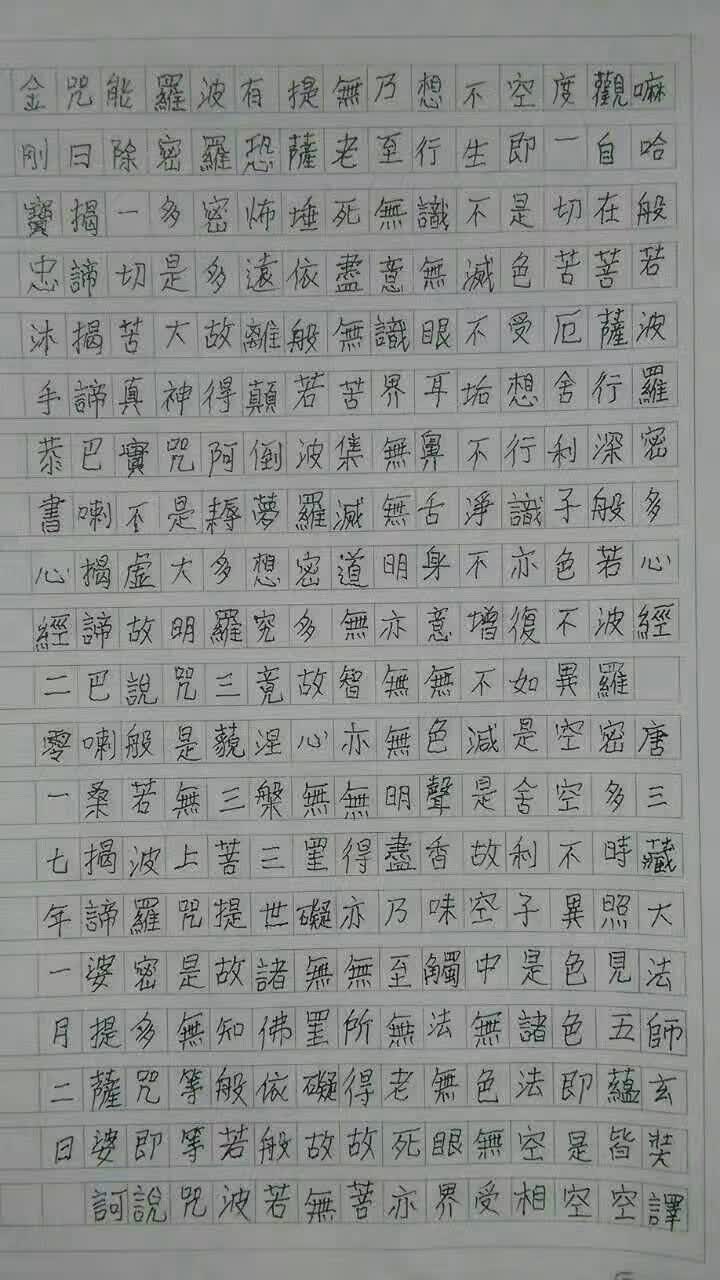 嘛哈般若波羅密多心經 唐三藏大法師玄奘譯
觀自在菩薩行深般若波羅密多時照見五蘊皆空
度一切苦厄舍利子色不異空空不異色色即是空
空即是色受想行識亦復如是舍利子是諸法空相
不生不滅不垢不淨不增不減是故空中無色無受
想行識無眼耳鼻舌身意無色聲香味觸法無眼界
乃至無意識界無無明亦無無明盡乃至無老死亦
無老死盡無苦集滅道無智亦無得亦無所得故菩
提薩埵依般若波羅密多故心無罣礙無罣礙故無
有恐怖遠離顛倒夢想究竟涅槃三世諸佛依般若
波羅密多故得阿耨多羅三藐三菩提故知般若波
羅密多是大神咒是大明咒是無上咒是無等等咒
能除一切苦真實不虛故說般若波羅密多咒即說
咒曰揭諦揭諦巴喇揭諦巴喇桑揭諦婆提薩婆訶
金剛寶忠沐手恭書心經二零一七年一月二日